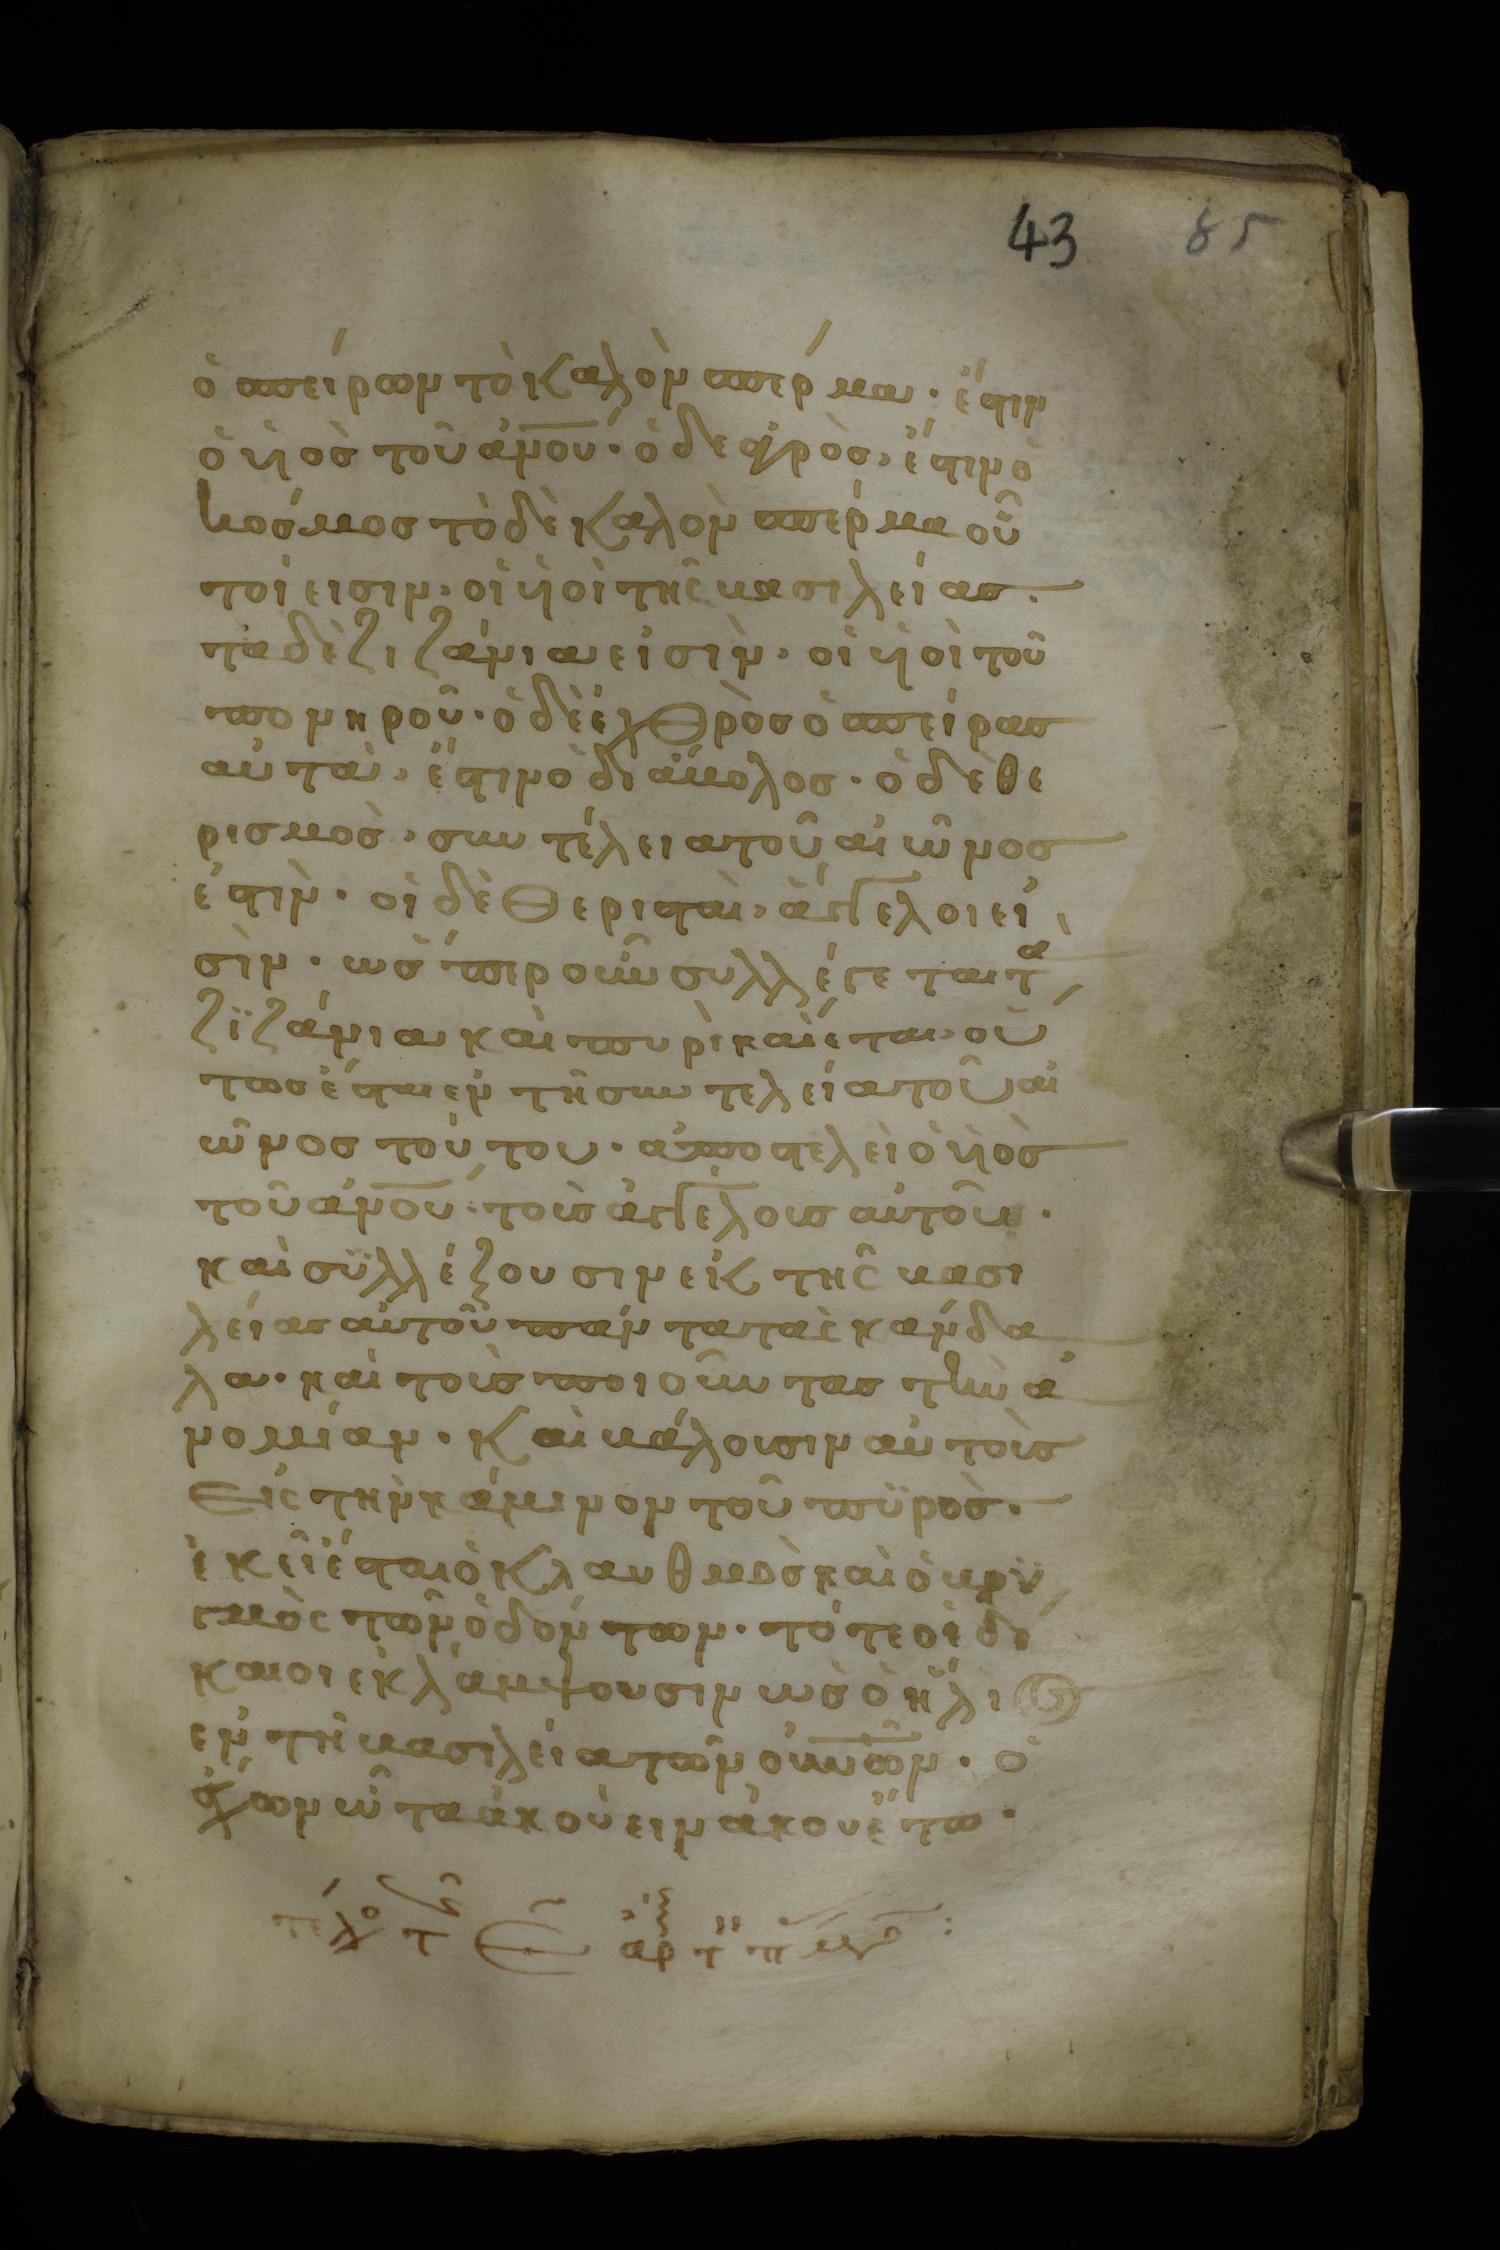 43 85
ὁ σπείρων τὸ καλὸν σπέρμα· ἐστιν
ὁ ὑιὸσ τοῦ ἀνου· ὁ δε ἀγρὸσ, ἐστιν ὁ
κοσμοσ τὸ δὲ καλὸν σπέρμα οὗ
τοί εισιν· οἱ ὑιοὶ τῆς βασιλείασ·
τα δὲ ζιζάνια εἰσὶν· οἱ ὑιοὶ τοῦ
πονηροῦ· ὁ δὲ ἐχθρὸσ ὁ σπείρασ
αὐτα, ἐστιν ὁ διάβολοσ· ὁ δὲ θε
ρισμοσ, συντέλεια τοῦ αἰῶνοσ
ἐστὶν· οἱ δὲ θερισταὶ, ἄγγελοι εἰ
σὶν· ὡσπερ οὖν συλλέγεται τὰ
ζϊζάνια καὶ πυρὶ καίεται, οὑ
τωσ ἐσται ἐν τῆ συντελεία τοῦ αἰ
ῶνοσ τούτου· ἀποστελεὶ ὁ ὑιὸσ
τοῦ ἀνου τοὺσ ἀγγέλουσ αὐτοῦ·
καὶ συλλέξουσιν ἐκ τῆς βασι
λείασ αὐτοῦ πάντα τα σκάνδα
λα· καὶ τοὺσ ποιοῦντασ τὴν ἀ
νομίαν· καὶ βάλουσιν αὐτοὺσ
εἰς τὴν κάμινον τοῦ πϋρὸσ·
ἐκεῖ ἐσται ὁ κλαυθμὸσ καὶ ὁ βρϋ
γμὸς τῶν ὀδόντων· τότε οἱ δί
καιοι ἐκλάμψουσιν ὡσ ὁ ἥλιος
ἐν τῆ βασιλεία τῶν οὐνῶν· ὁ
ἔχων ὦτα ἀκούειν ἀκουέτω·
τελο τ